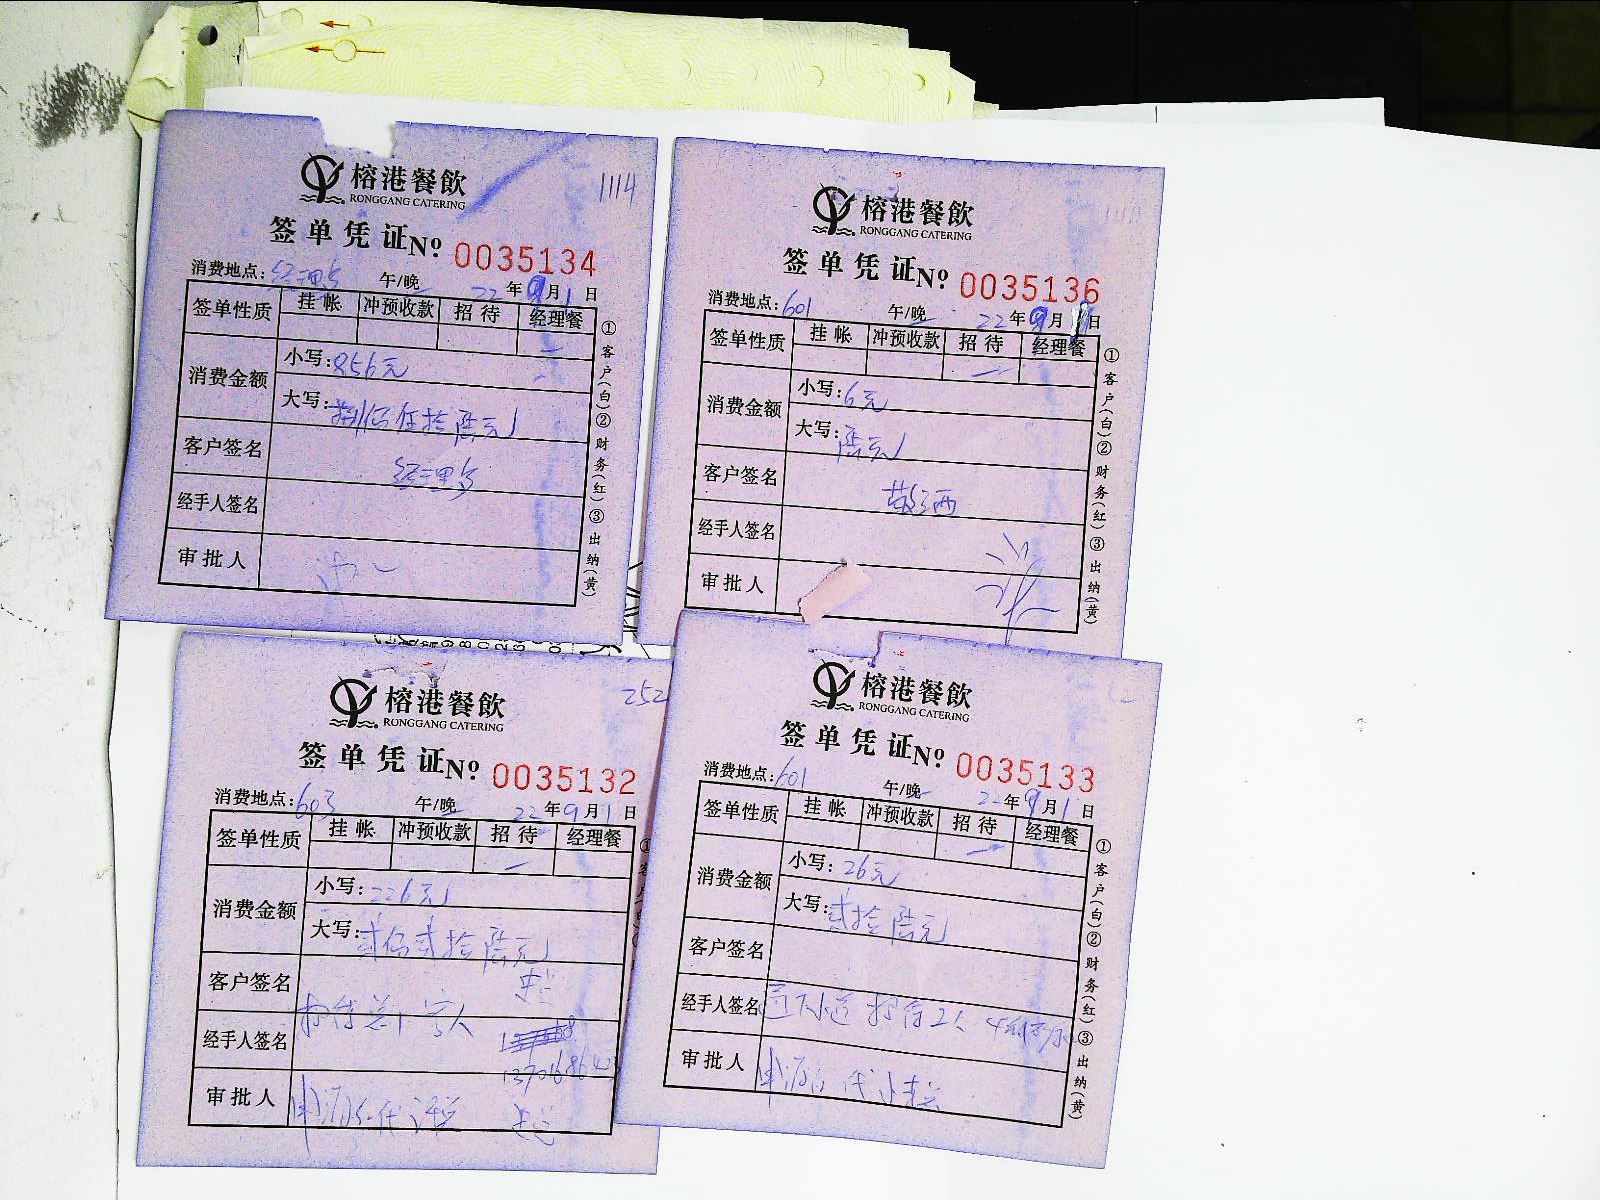 榕港餐飲
RONGGANG CATERING
1114
签单凭证 Nº 0035134
消费地点:经理乡 午/晚 22年9月1日
签单性质 挂帐 冲预收款 招待 经理餐
消费金额 小写:856元
大写:捌佰伍拾陆元
客户签名 经理乡
经手人签名
审批人
①客户(白)②财务(红)③出纳(黄)
榕港餐飲
RONGGANG CATERING
签单凭证 Nº 0035136
消费地点:601 午/晚 22年9月1日
签单性质 挂帐 冲预收款 招待 经理餐
消费金额 小写:6元
大写:陆元
客户签名
经手人签名
审批人
①客户(白)②财务(红)③出纳(黄)
榕港餐飲
RONGGANG CATERING
252
签单凭证 Nº 0035132
消费地点:603 午/晚 22年9月1日
签单性质 挂帐 冲预收款 招待 经理餐
消费金额 小写:226元
大写:贰佰贰拾陆元
客户签名
经手人签名
审批人
榕港餐飲
RONGGANG CATERING
签单凭证 Nº 0035133
消费地点:601 午/晚 22年9月1日
签单性质 挂帐 冲预收款 招待 经理餐
消费金额 小写:26元
大写:贰拾陆元
客户签名
经手人签名 招待2人
审批人
①客户(白)②财务(红)③出纳(黄)